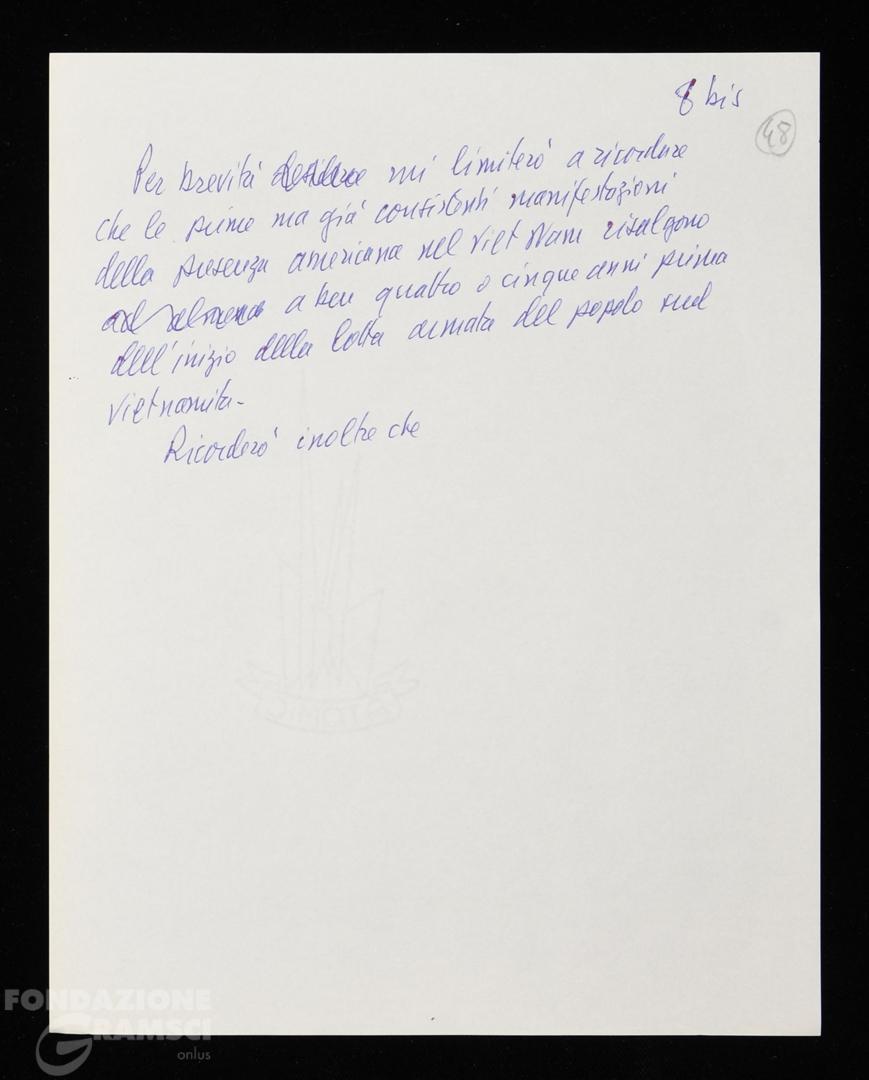 8 bis
48
Per brevità mi limiterò a ricordare
che le prime ma già consistenti manifestazioni
della presenza americana nel Viet Nam risalgono
ad almeno a ben quattro o cinque anni prima
dell'inizio della lotta armata del popolo sud
vietnamita.
Ricorderò inoltre che
FONDAZIONE
GRAMSCI
onlus